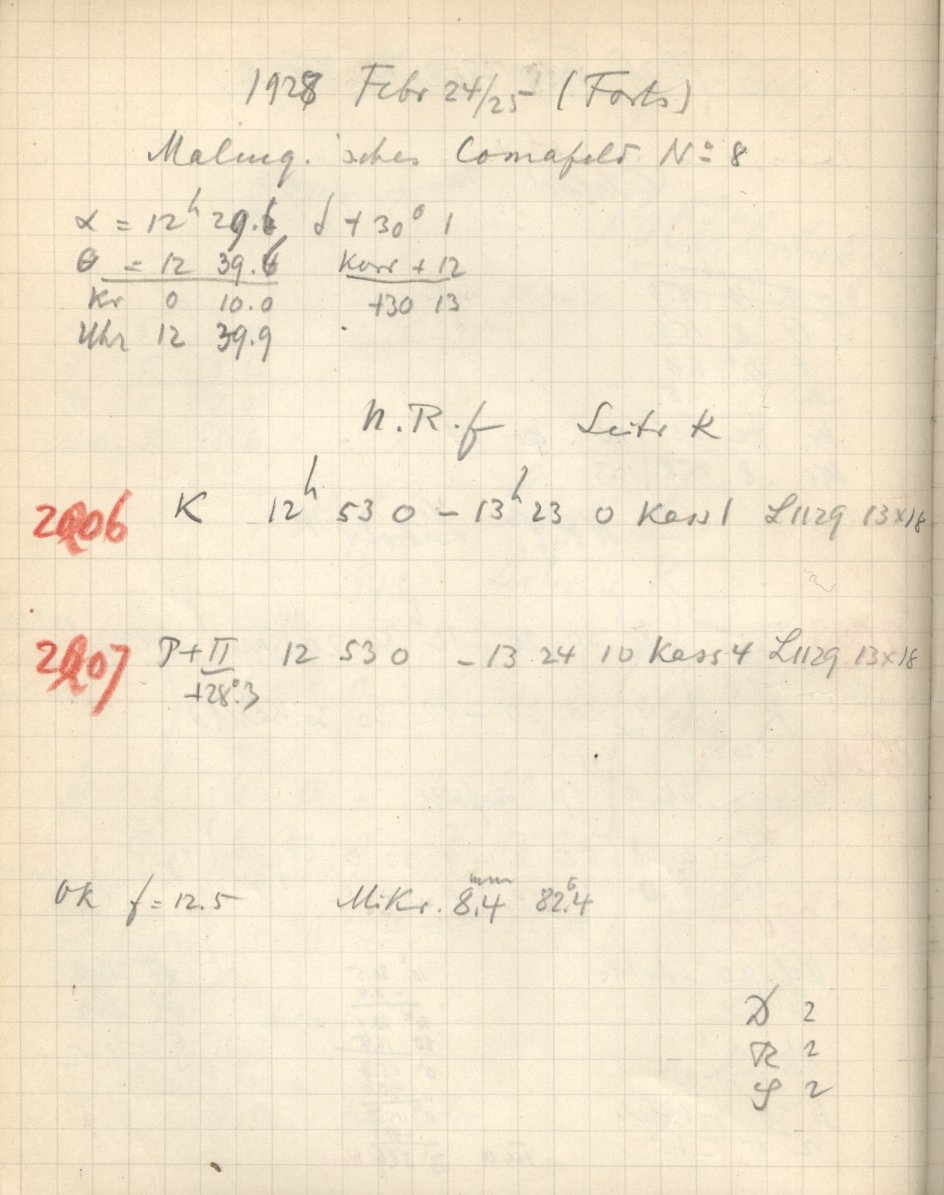 1928 Febr 24/25 (Forts)
Malmq. 'sches Comafeld No 8
α = 12h 29.6 δ + 30° 1
θ = 12 39.6 Korr + 12
Kr 0 10.0 +30 13
Uhr 12 39.9
N.R.f Leitr K
2906 K 12h 53 0 – 13h 23 0 Kass 1 L1129 13×18
2907 P+II 12 53 0 – 13 24 10 Kass 4 L1129 13×18
+28°.3
Ok f = 12.5 Mikr. 8.4mm 82.4
D 2
R 2
S 2